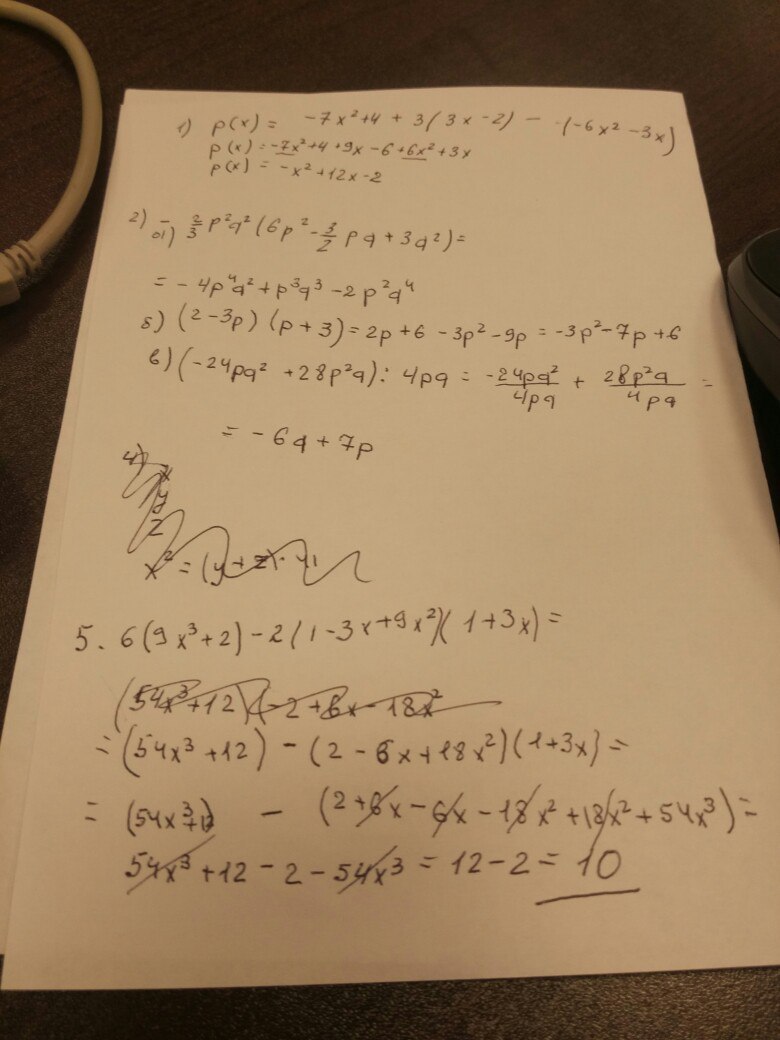 1) p(x) = -7x²+4 + 3(3x-2) - (-6x² -3x)
p(x) = -7x²+4 +9x -6+6x²+3x
p(x) = -x²+12x-2
2) а) -2/3 p²q²(6p² - 3/2 pq + 3q²) =
= -4p⁴q² + p³q³ - 2p²q⁴
б) (2-3p)(p+3) = 2p+6 -3p² -9p = -3p²-7p+6
в) (-24pq² +28p²q) : 4pq = -24pq²/4pq + 28p²q/4pq =
= -6q+7p
4) x
y
z
x² = (y+z)·y
5. 6(9x³+2) -2(1-3x+9x²)(1+3x) =
(54x³+12)(-2+6x-18x²
= (54x³+12) - (2-6x+18x²)(1+3x) =
= (54x³+12) - (2+6x-6x-18x²+18x²+54x³) =
54x³+12-2-54x³ = 12-2 = 10